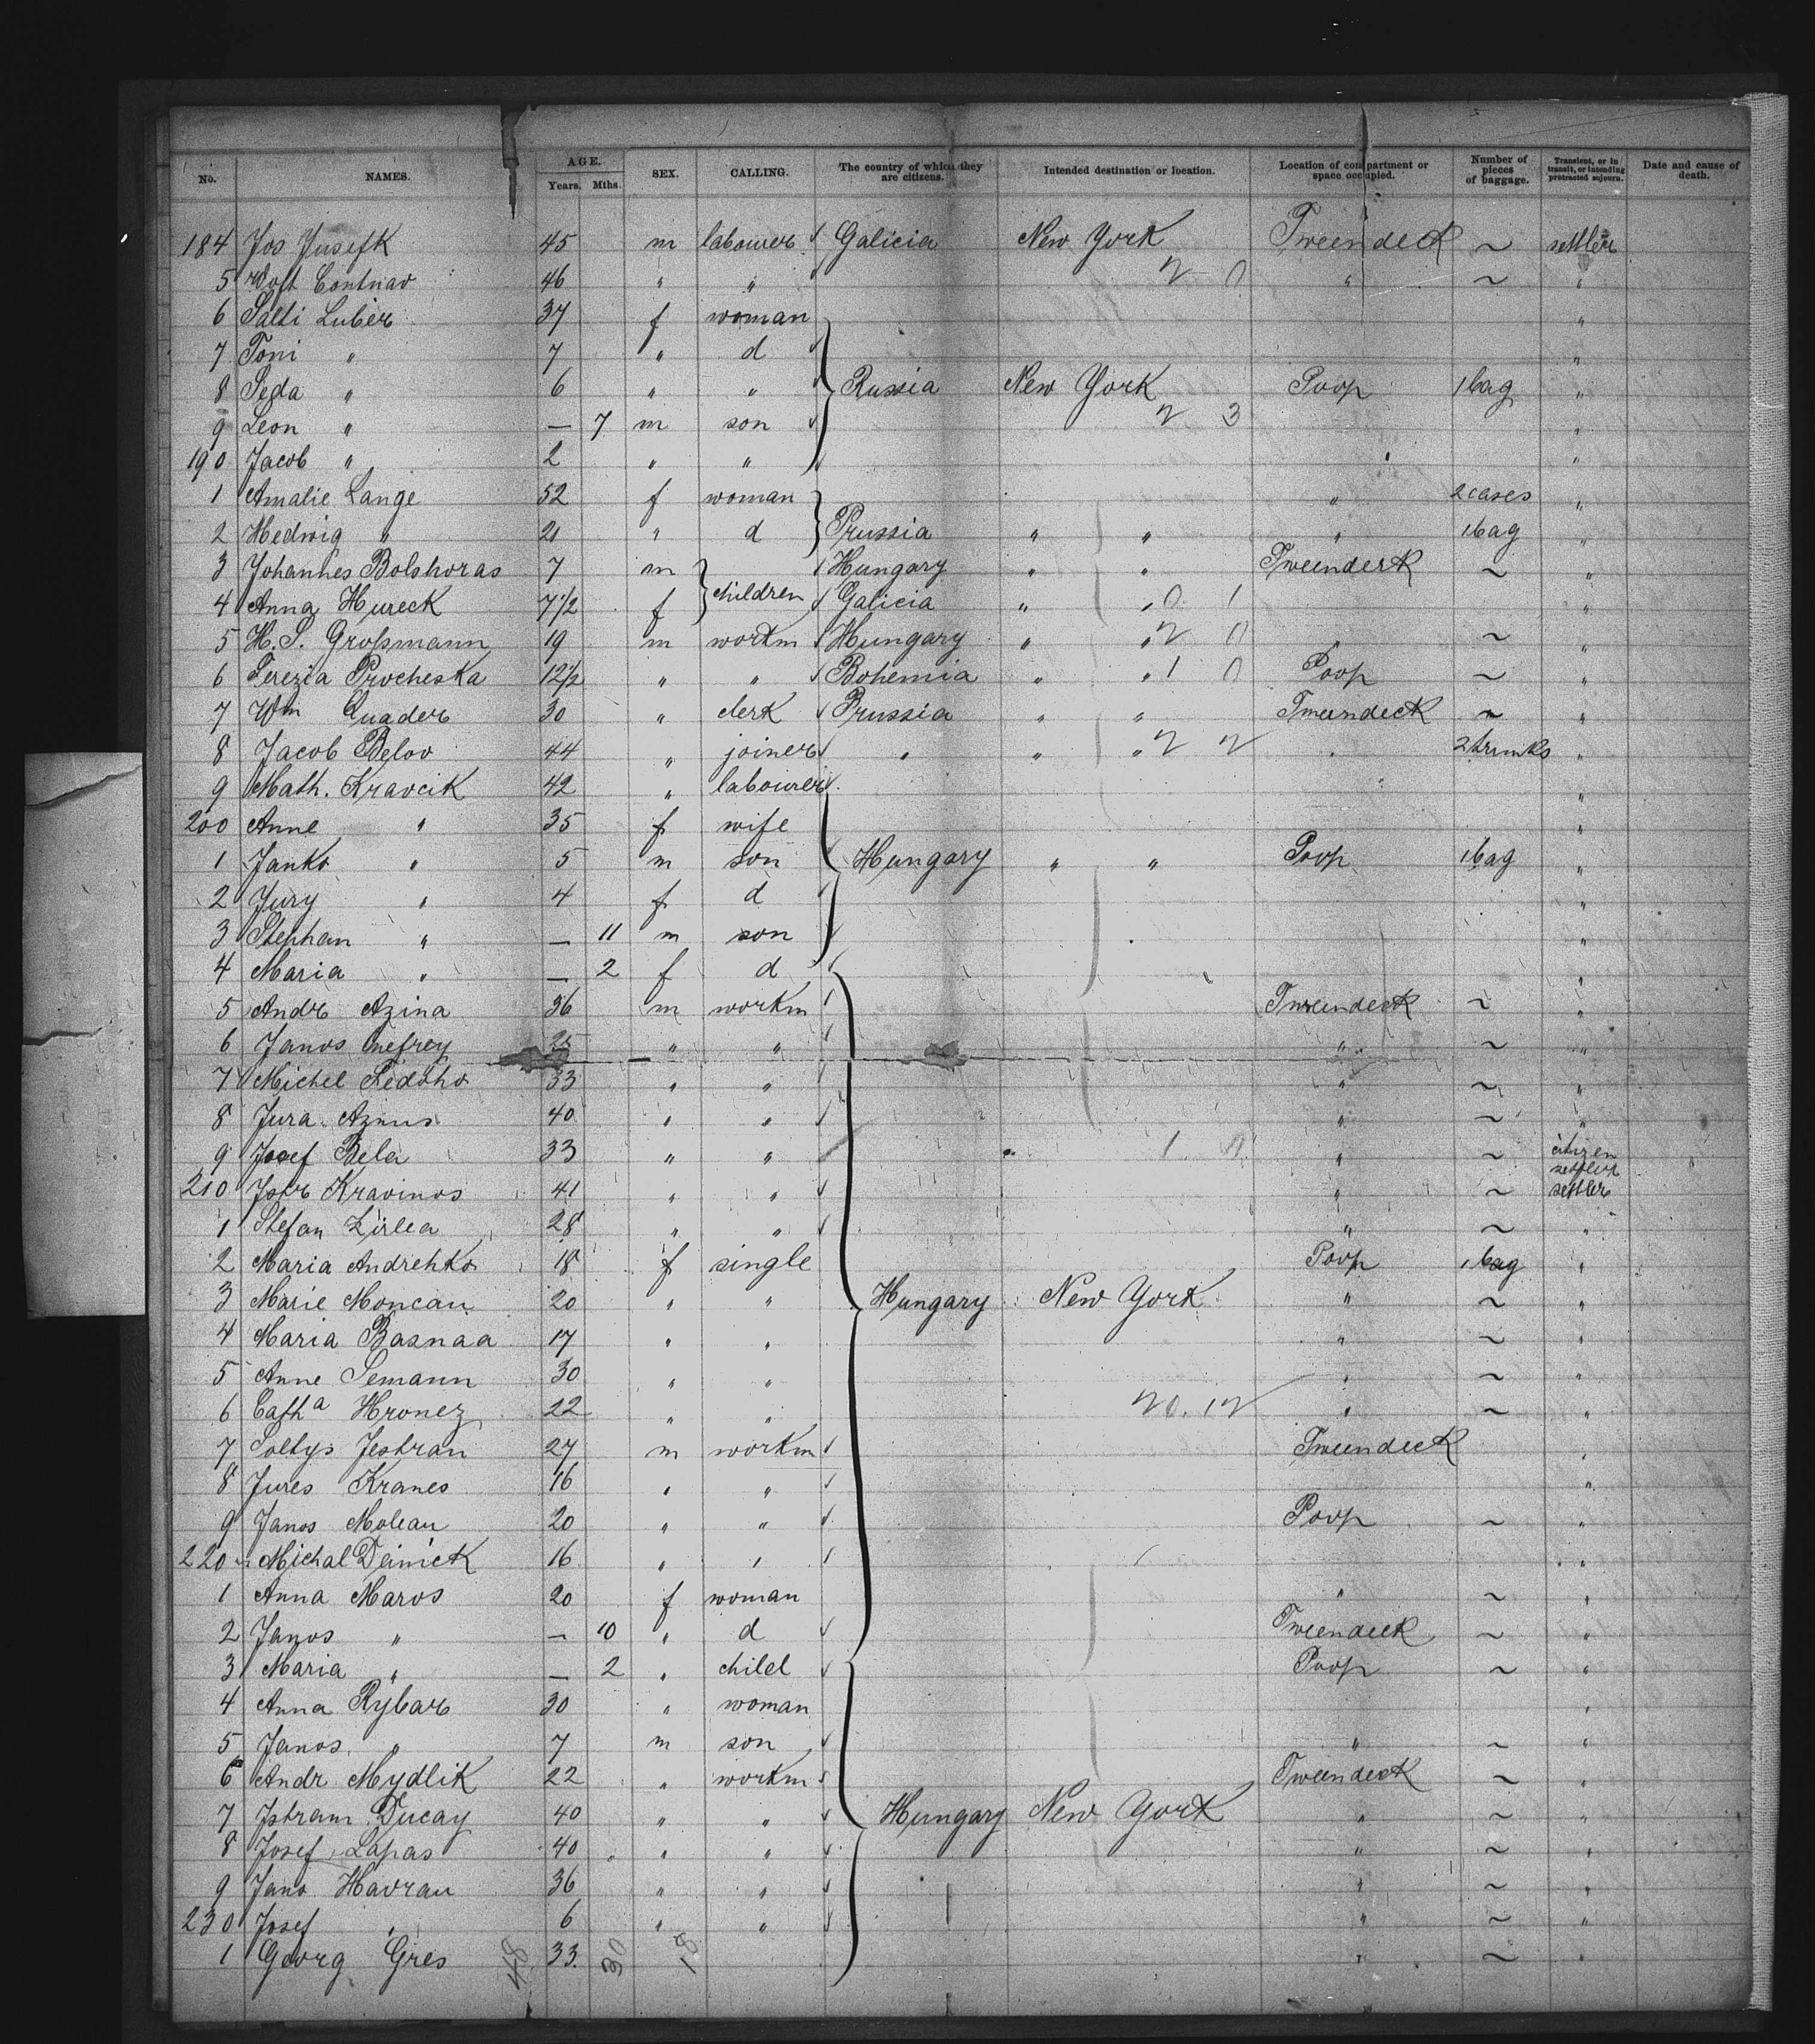 No. NAMES. AGE. Years. Mths. SEX. CALLING. The country of which they are citizens. Intended destination or location. Location of compartment or space occupied. Number of pieces of baggage. Transient, or in transit, or intending protracted sojourn. Date and cause of death.
184 Jos Jusefk 45 m labourer Galicia New York Tweendeck ~ settler
5 46 " " 2 0 " ~ "
6 Salti Luber 37 f woman "
7 Toni " 7 " d "
8 Seda " 6 " " Russia New York Poop 1 bag "
9 Leon " — 7 m son 2 3 "
190 Jacob " 2 " " " "
1 Amalie Lange 52 f woman " 2 cases "
2 Hedwig " 21 " d Prussia " " " 1 bag "
3 Johannes Bolshoras 7 m Hungary " " Tweendeck ~ "
4 Anna Hureck 7 1/2 f children Galicia " " 0 1 "
5 H. S. Großmann 19 m workm Hungary " " 2 0 " ~ "
6 Terezia Procheska 12 1/2 " " Bohemia " " 1 0 Poop ~ "
7 Wm Quader 30 " clerk Prussia " " Tweendeck ~ "
8 Jacob Belov 44 " joiner " " " 2 2 " 2 trunks "
9 Math. Kravcik 42 " labourer "
200 Anne " 35 f wife "
1 Janko " 5 m son Hungary " " Poop 1 bag "
2 Jury " 4 f d "
3 Stephan " — 11 m son "
4 Maria " — 2 f d "
5 Andr Azina 36 m workm Tweendeck ~ "
6 Janos 25 " " " ~ "
7 Michel Fedoho 33 " " " ~ "
8 Jura Azmus 40 " " " ~ "
9 Josef Bela 33 " " " 1 0 " ~ citizen settler
210 Kravinos 41 " " " ~ settler
1 Stefan Zirlea 28 " " " ~ "
2 Maria Andrehko 18 f single Poop 1 bag "
3 Marie Moncau 20 " " Hungary New York " ~ "
4 Maria Basnaa 17 " " " ~ "
5 Anne Semann 30 " " " ~ "
6 Catha Hronez 22 " " 20. 12 " ~ "
7 Soltys Jestran 27 m workm Tweendeck "
8 Jures Kranes 16 " " "
9 Janos Molean 20 " " Poop ~ "
220 Michal Deinick 16 " " "
1 Anna Maros 20 f woman " ~ "
2 Janos " — 10 " d Tweendeck ~ "
3 Maria " — 2 " child Poop ~ "
4 Anna Rybar 30 " woman "
5 Janos " 7 m son " ~ "
6 Andr Mydlik 22 " workm Tweendeck ~ "
7 Jstram Ducay 40 " " Hungary New York " ~ "
8 Josef Lapas 40 " " " ~ "
9 Jano Havran 36 " " " ~ "
230 Josef " 6 " " " ~ "
1 Georg Gres 33 " ~ "
48 30 18